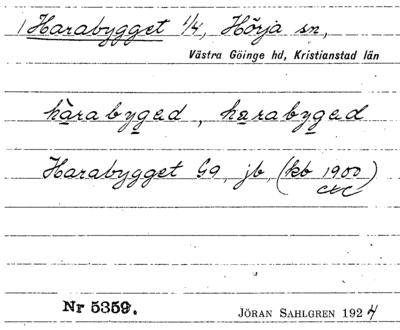 Harabygget 1/4, Hörja sn,
Västra Göinge hd, Kristianstad län
hàrabyged, harabyged
Harabygget Gg, jb, (kb 1900)
etc
Nr 5359. JÖRAN SAHLGREN 1924